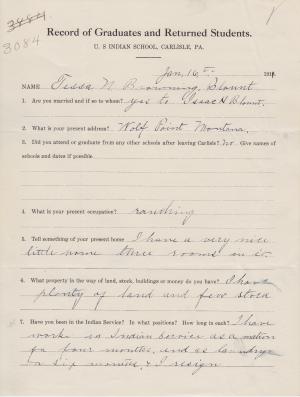 3484
3084
Record of Graduates and Returned Students.
U. S INDIAN SCHOOL, CARLISLE, PA.
Jan, 16 191
NAME Tessa N Browning, Blount
1. Are you married and if so to whom? yes to Isaac H Blount.
2. What is your present address? Wolf Point Montana.
3. Did you attend or graduate from any other schools after leaving Carlisle? no Give names
of schools and dates if possible.
4. What is your present occupation? ranching
5. Tell something of your present home I have a very nice
little home three rooms in it.
6. What property in the way of land, stock, buildings or money do you have? I have
plenty of land and few stock
7. Have you been in the Indian Service? In what positions? How long in each? I have
work in Indian Service as a matron
for four months, and as laundry
six months, & I resign